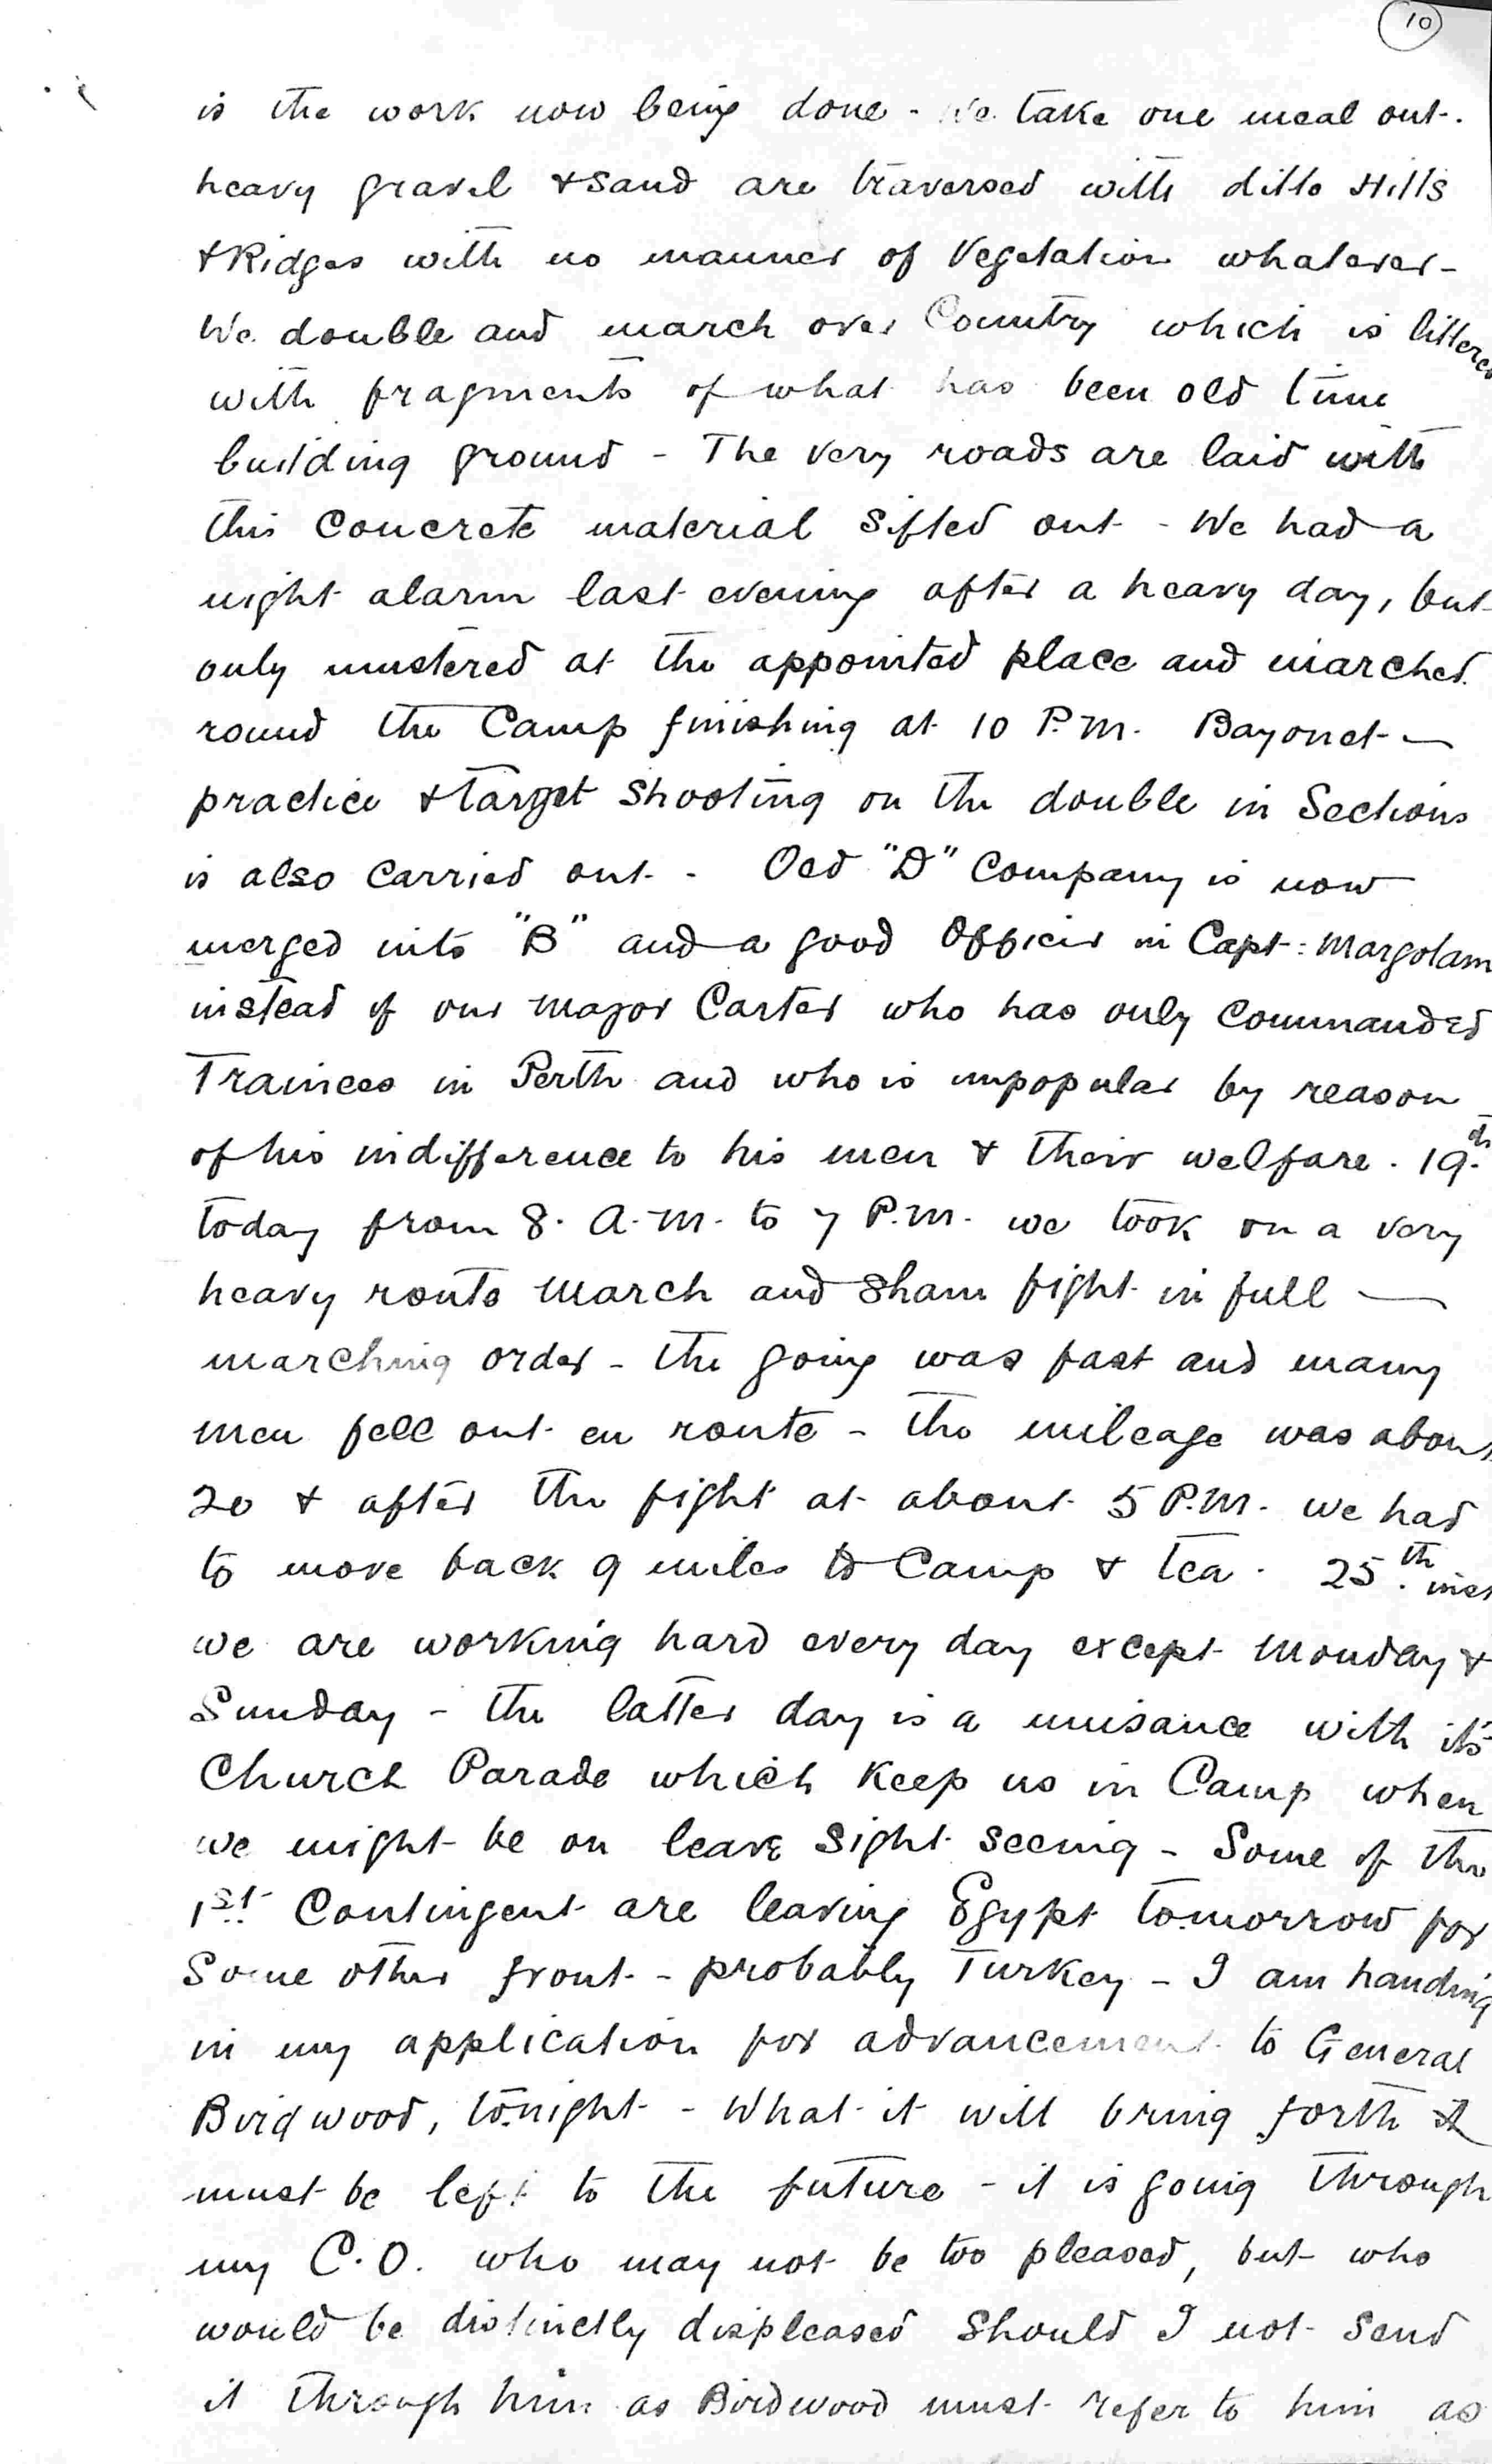 10
is the work now being done - We take one meal out.
heavy gravel & sand are traversed with ditto Hills
& Ridges with no manner of Vegetation whatever -
We double and march over Country which is littered
with fragments of what has been old time
building ground - The very roads are laid with
this Concrete material Sifted out - We had a
night alarm last evening after a heavy day, but
only mustered at the appointed place and marched
round the Camp finishing at 10 P.M. Bayonet -
practice & target Shooting on the double in Sections
is also Carried out - Old "D" Company is now
merged into "B" and a good Officer in Capt: Margolam
instead of our Major Carter who has only Commanded
Trainees in Perth and who is unpopular by reason
of his indifference to his men & their welfare. 19th
today from 8. A.M. to 7 P.M. we took on a very
heavy route March and Sham fight in full -
marching order - the going was fast and many
men fell out en route - the mileage was about
20 & after the fight at about 5 P.M. we had
to move back 9 miles to Camp & tea. 25th inst
we are working hard every day except Monday &
Sunday - the latter day is a nuisance with it's
Church Parade which Keep us in Camp when
we might be on leave Sight Seeing - Some of the
1st Contingent are leaving Egypt tomorrow for
Some other front - probably Turkey - I am handing
in my application for advancement to General
Birdwood, tonight - What it will bring forth
must be left to the future - it is going through
my C.O. who may not be too pleased, but who
would be distinctly displeased Should I not Send
it through him as Birdwood must refer to him as